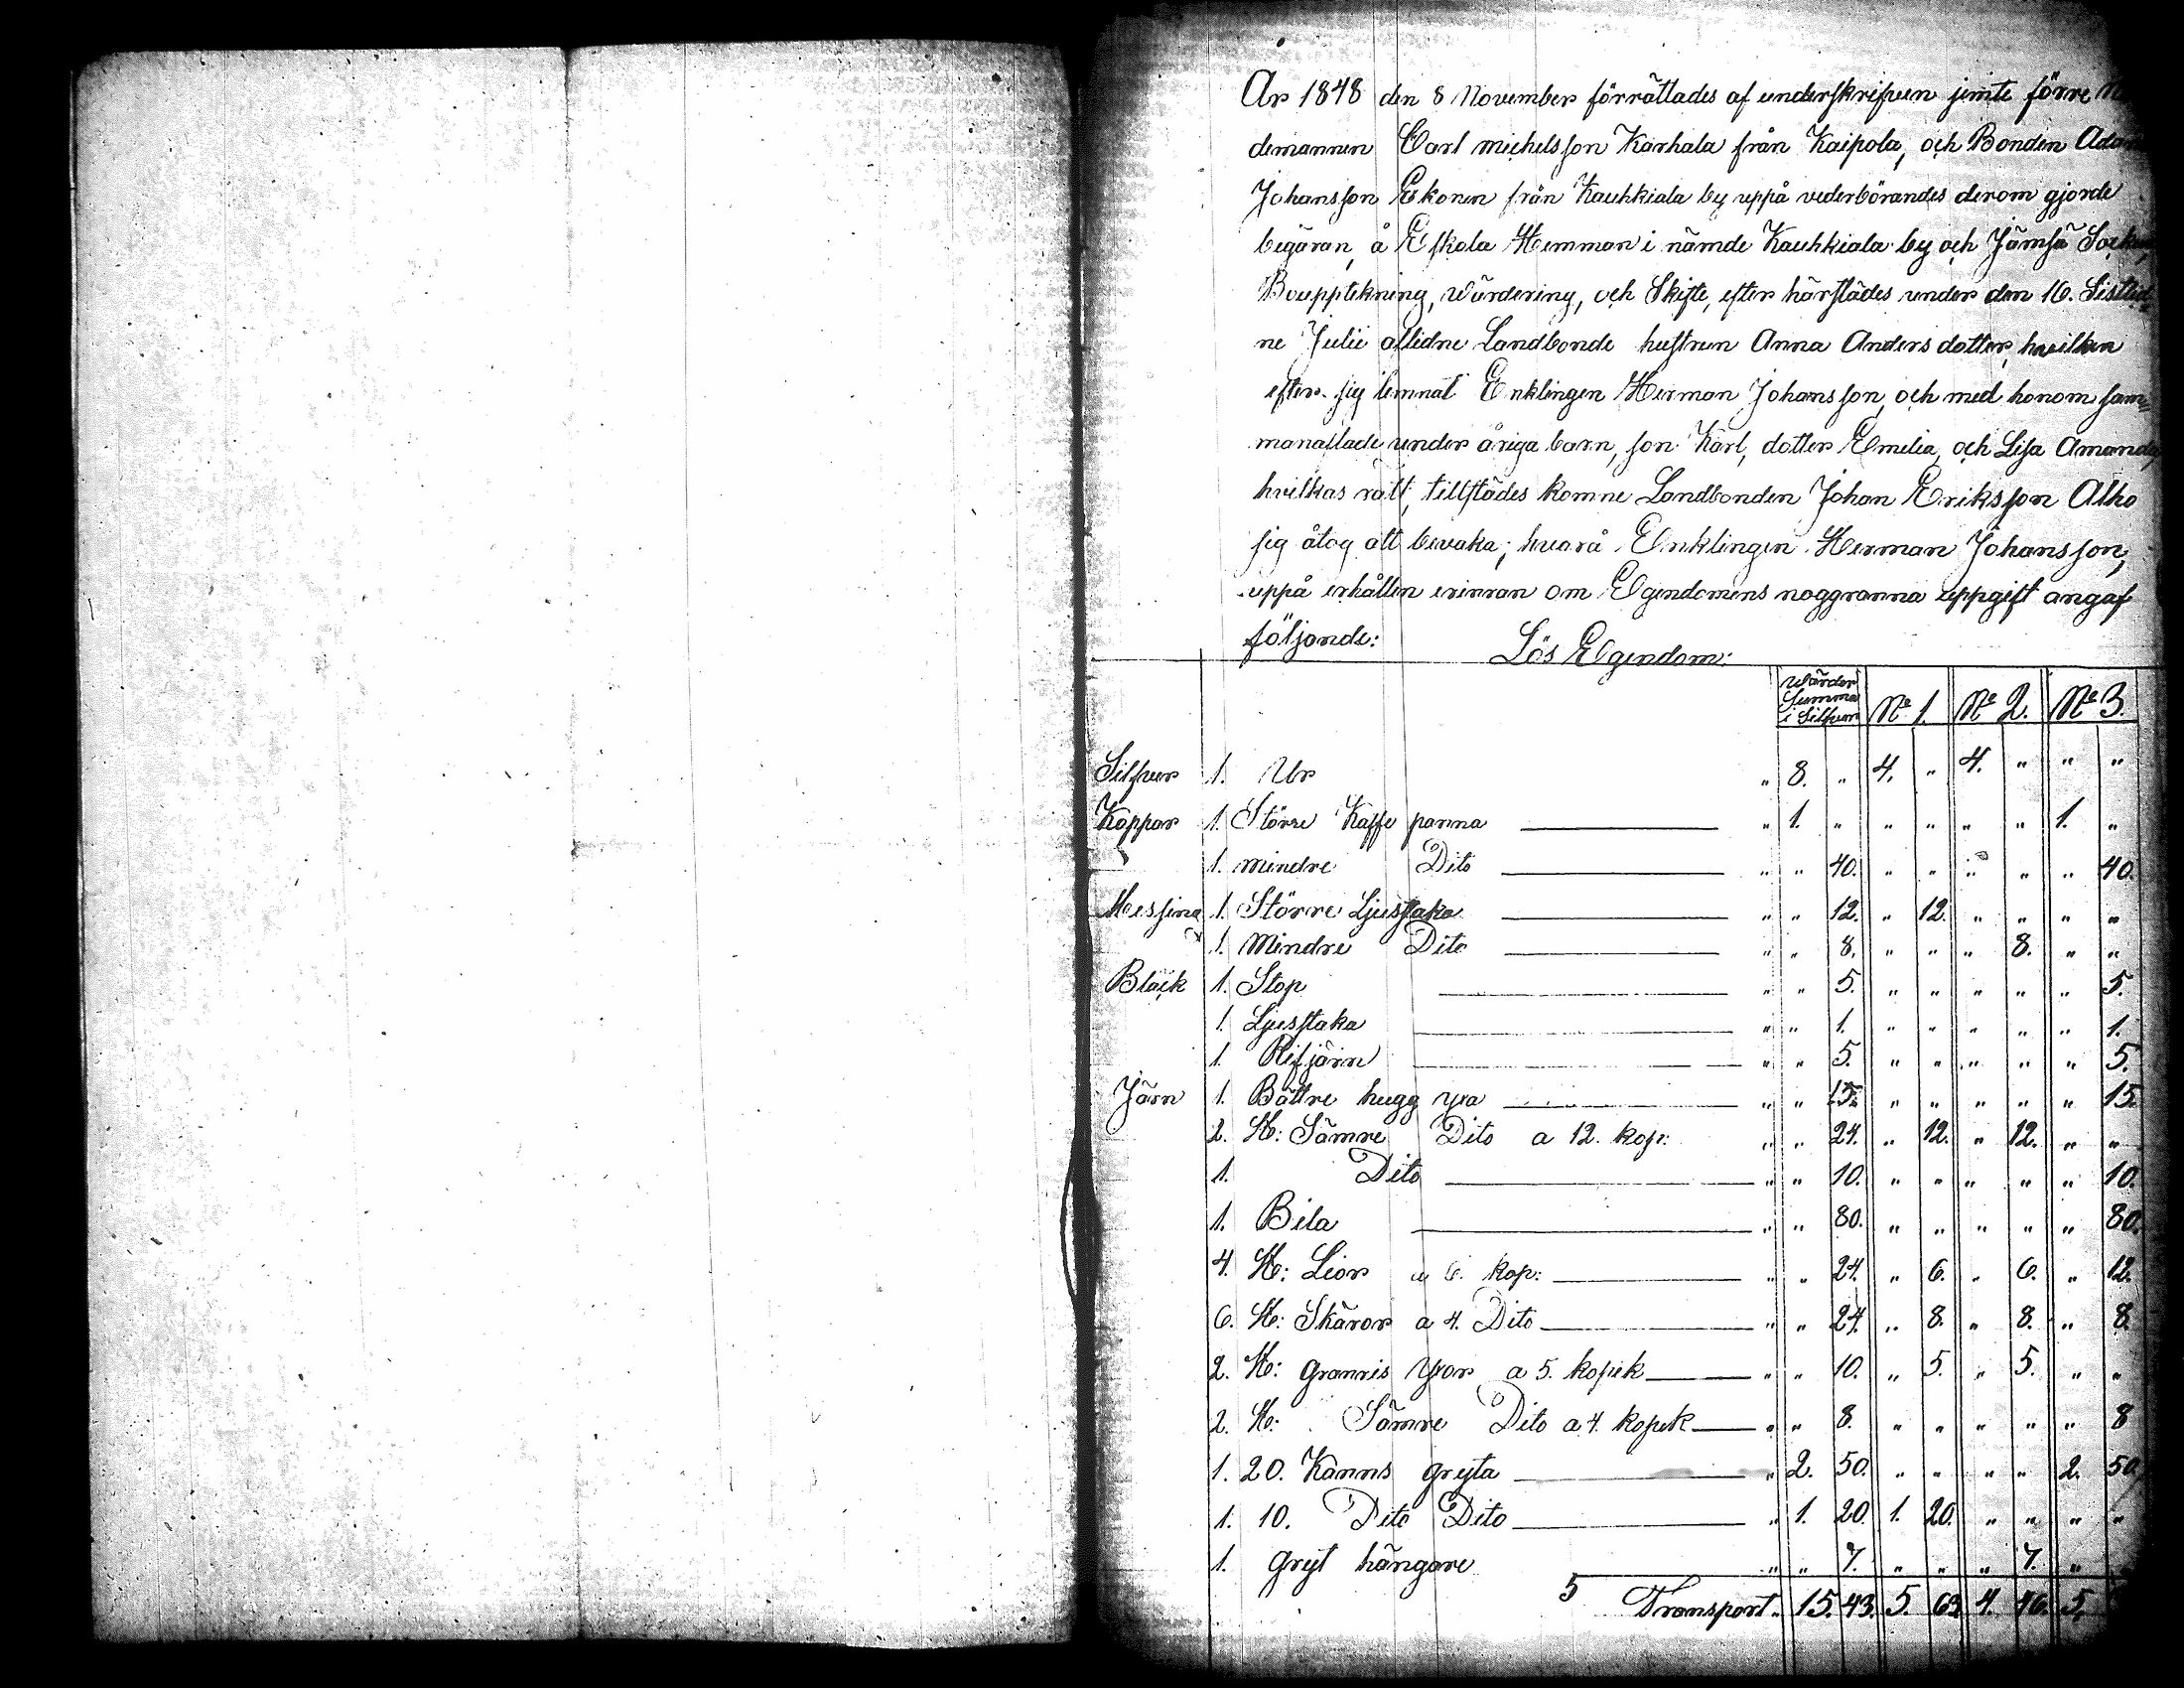 År 1848 den 8 November förrättades af underskrifven jemte förre
demannen Carl Michelsson Karhala från Kaipola, och Bonden Adam
Johansson Ekonen från Kauhkiala by uppå vederbörandes derom gjorde
begäran, å Eskola Hemman i nämde Kauhkiala by och Jämsä Socken,
Bouppteckning, Värdering, och Skifte, efter härstädes under den 16. Sistlid
ne Julii aflidne Landbonde hustrun Anna Anders dotter, hvilken
efter sig lemnat Enklingen Herman Johansson, och med honom sam=
manaflade under åriga barn, son Karl, dotter Emelia, och Lisa Amanda,
hvilkas rätt, tillstädes komne Landbonden Johan Eriksson Alho
sig åtog att bevaka; hvarå Enklingen Herman Johansson,
uppå erhållen erinran om Egendomens noggranna uppgift angaf
följande: Lös Egendom:
Värder Summa i Silfver No 1. No 2. No 3.
Silfver 1. Ur " 8. " 4. " 4. " " "
Koppar 1. Större Kaffe panna " 1. " " " " " 1. "
1. mindre Dito " " 40. " " " " " 40.
Messing 1. Större Ljusstake " " 12. " 12. " " " "
1. Mindre Dito " " 8. " " " 8. " "
Bläck 1. Stop " " 5. " " " " " 5.
1. Ljusstaka " " 1. " " " " " 1.
1. Rifjärn " " 5. " " " " " 5.
Järn 1. Bättre hugg yxa " " 15. " " " " " 15.
2. St: Sämre Dito a 12. kop: " " 24. " 12. " 12. " "
1. Dito " " 10. " " " " " 10.
1. Bila " " 80. " " " " " 80.
4. St: Lior a 6. kop: " " 24. " 6. " 6. " 12.
6. St: Skäror a 4. Dito " " 24. " 8. " 8. " 8.
2. St: granris Yxor a 5. kopek " " 10. " 5. " 5. " "
2. St: Sämre Dito a 4. kopek " " 8. " " " " " 8
1. 20. Kanns gryta " 2. 50. " " " " 2. 50
1. 10. Dito Dito " 1. 20. 1. 20. " " " "
1. gryt hängare " " 7. " " " 7. "
5 Transport " 15. 43. 5. 63. 4. 46. 5.